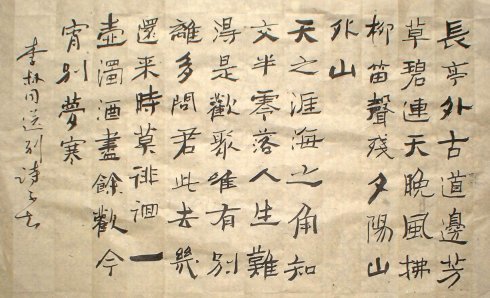 長亭外古道邊芳
草碧連天晚風拂
柳笛聲殘夕陽山
外山
天之涯海之角知
交半零落人生難
得是歡聚唯有別
離多問君此去幾
還来時莫徘徊一
壺濁酒盡餘歡今
宵別夢寒
李叔同送别詩